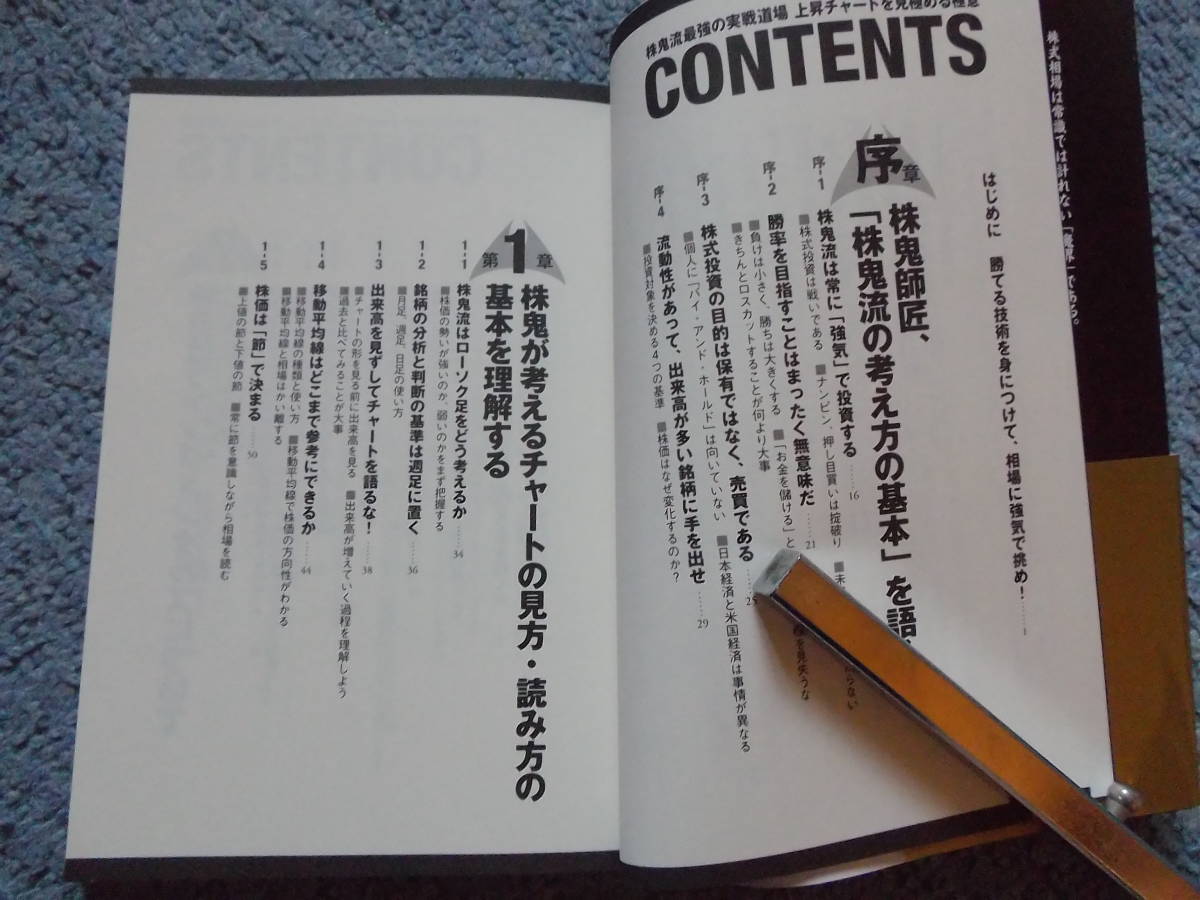 株鬼流最強の実戦道場 上昇チャートを見極める極意
CONTENTS
株式相場は常識では計れない「魔界」である。
はじめに 勝てる技術を身につけて、相場に強気で挑め!……1
序章
株鬼師匠、
「株鬼流の考え方の基本」を語
序-1 株鬼流は常に「強気」で投資する……16
■株式投資は戦いである ■ナンピン、押し目買いは掟破り ■未 らない
序-2 勝率を目指すことはまったく無意味だ……21
■負けは小さく、勝ちは大きくする ■「お金を儲ける」と を見失うな
■きちんとロスカットすることが何より大事
序-3 株式投資の目的は保有ではなく、売買である……25
■個人に「バイ・アンド・ホールド」は向いていない ■日本経済と米国経済は事情が異なる
序-4 流動性があって、出来高が多い銘柄に手を出せ……29
■投資対象を決める4つの基準 ■株価はなぜ変化するのか?
第1章
株鬼が考えるチャートの見方・読み方の
基本を理解する
1-1 株鬼流はローソク足をどう考えるか……34
■株価の勢いが強いのか、弱いのかをまず把握する
1-2 銘柄の分析と判断の基準は週足に置く……36
■月足、週足、日足の使い方
1-3 出来高を見ずしてチャートを語るな!……38
■チャートの形を見る前に出来高を見る ■出来高が増えていく過程を理解しよう
■過去と比べてみることが大事
1-4 移動平均線はどこまで参考にできるか……44
■移動平均線の種類と使い方 ■移動平均線で株価の方向性がわかる
■移動平均線と相場はかい離する
1-5 株価は「節」で決まる……50
■上値の節と下値の節 ■常に節を意識しながら相場を読む